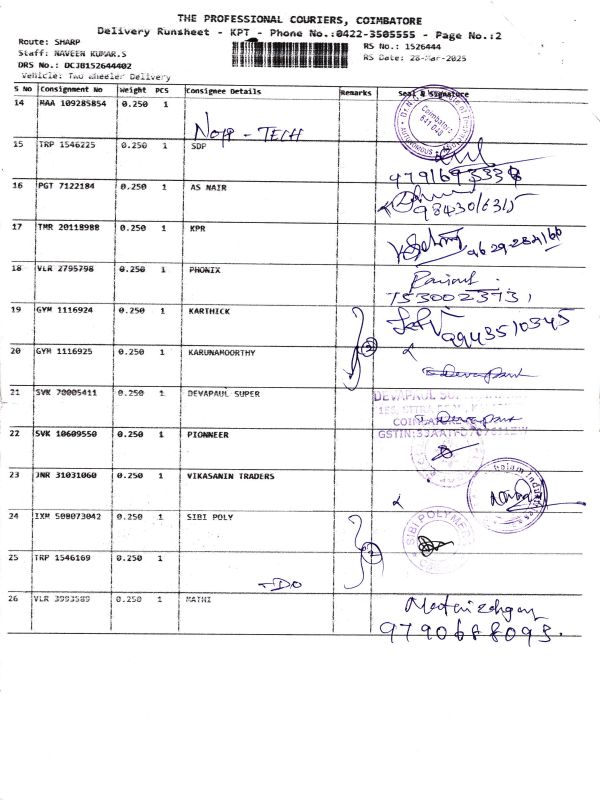 THE PROFESSIONAL COURIERS, COIMBATORE
Delivery Runsheet - KPT - Phone No.:0422-3505555 - Page No.:2
Route: SHARP
RS No.: 1526444
Staff: NAVEEN KUMAR.S
RS Date: 28-Mar-2025
DRS No.: DCJB152644402
Vehicle: Two Wheeler Delivery
S No Consignment No Weight PCS Consignee Details Remarks Seal & Signature
14 MAA 109285854 0.250 1
Coimbatore
641 048
AUTONOMOUS
NGP - TECH
15 TRP 1546225 0.250 1 SDP
9791693338
16 PGT 7122184 0.250 1 AS NAIR
9843016315
17 TMR 20118988 0.250 1 KPR
18 VLR 2795798 0.250 1 PHONIX
7530023731
19 GYM 1116924 0.250 1 KARTHICK
9943510345
2
20 GYM 1116925 0.250 1 KARUNAMOORTHY
21 SVK 70005411 0.250 1 DEVAPAUL SUPER
DEVAPAUL
22 SVK 10609550 0.250 1 PIONNEER
23 JNR 31031060 0.250 1 VIKASANIN TRADERS
24 IXM 508073042 0.250 1 SIBI POLY
SIBI POLYMERS
2
25 TRP 1546169 0.250 1
- DO
26 VLR 3993589 0.250 1 MATHI
9790688093.